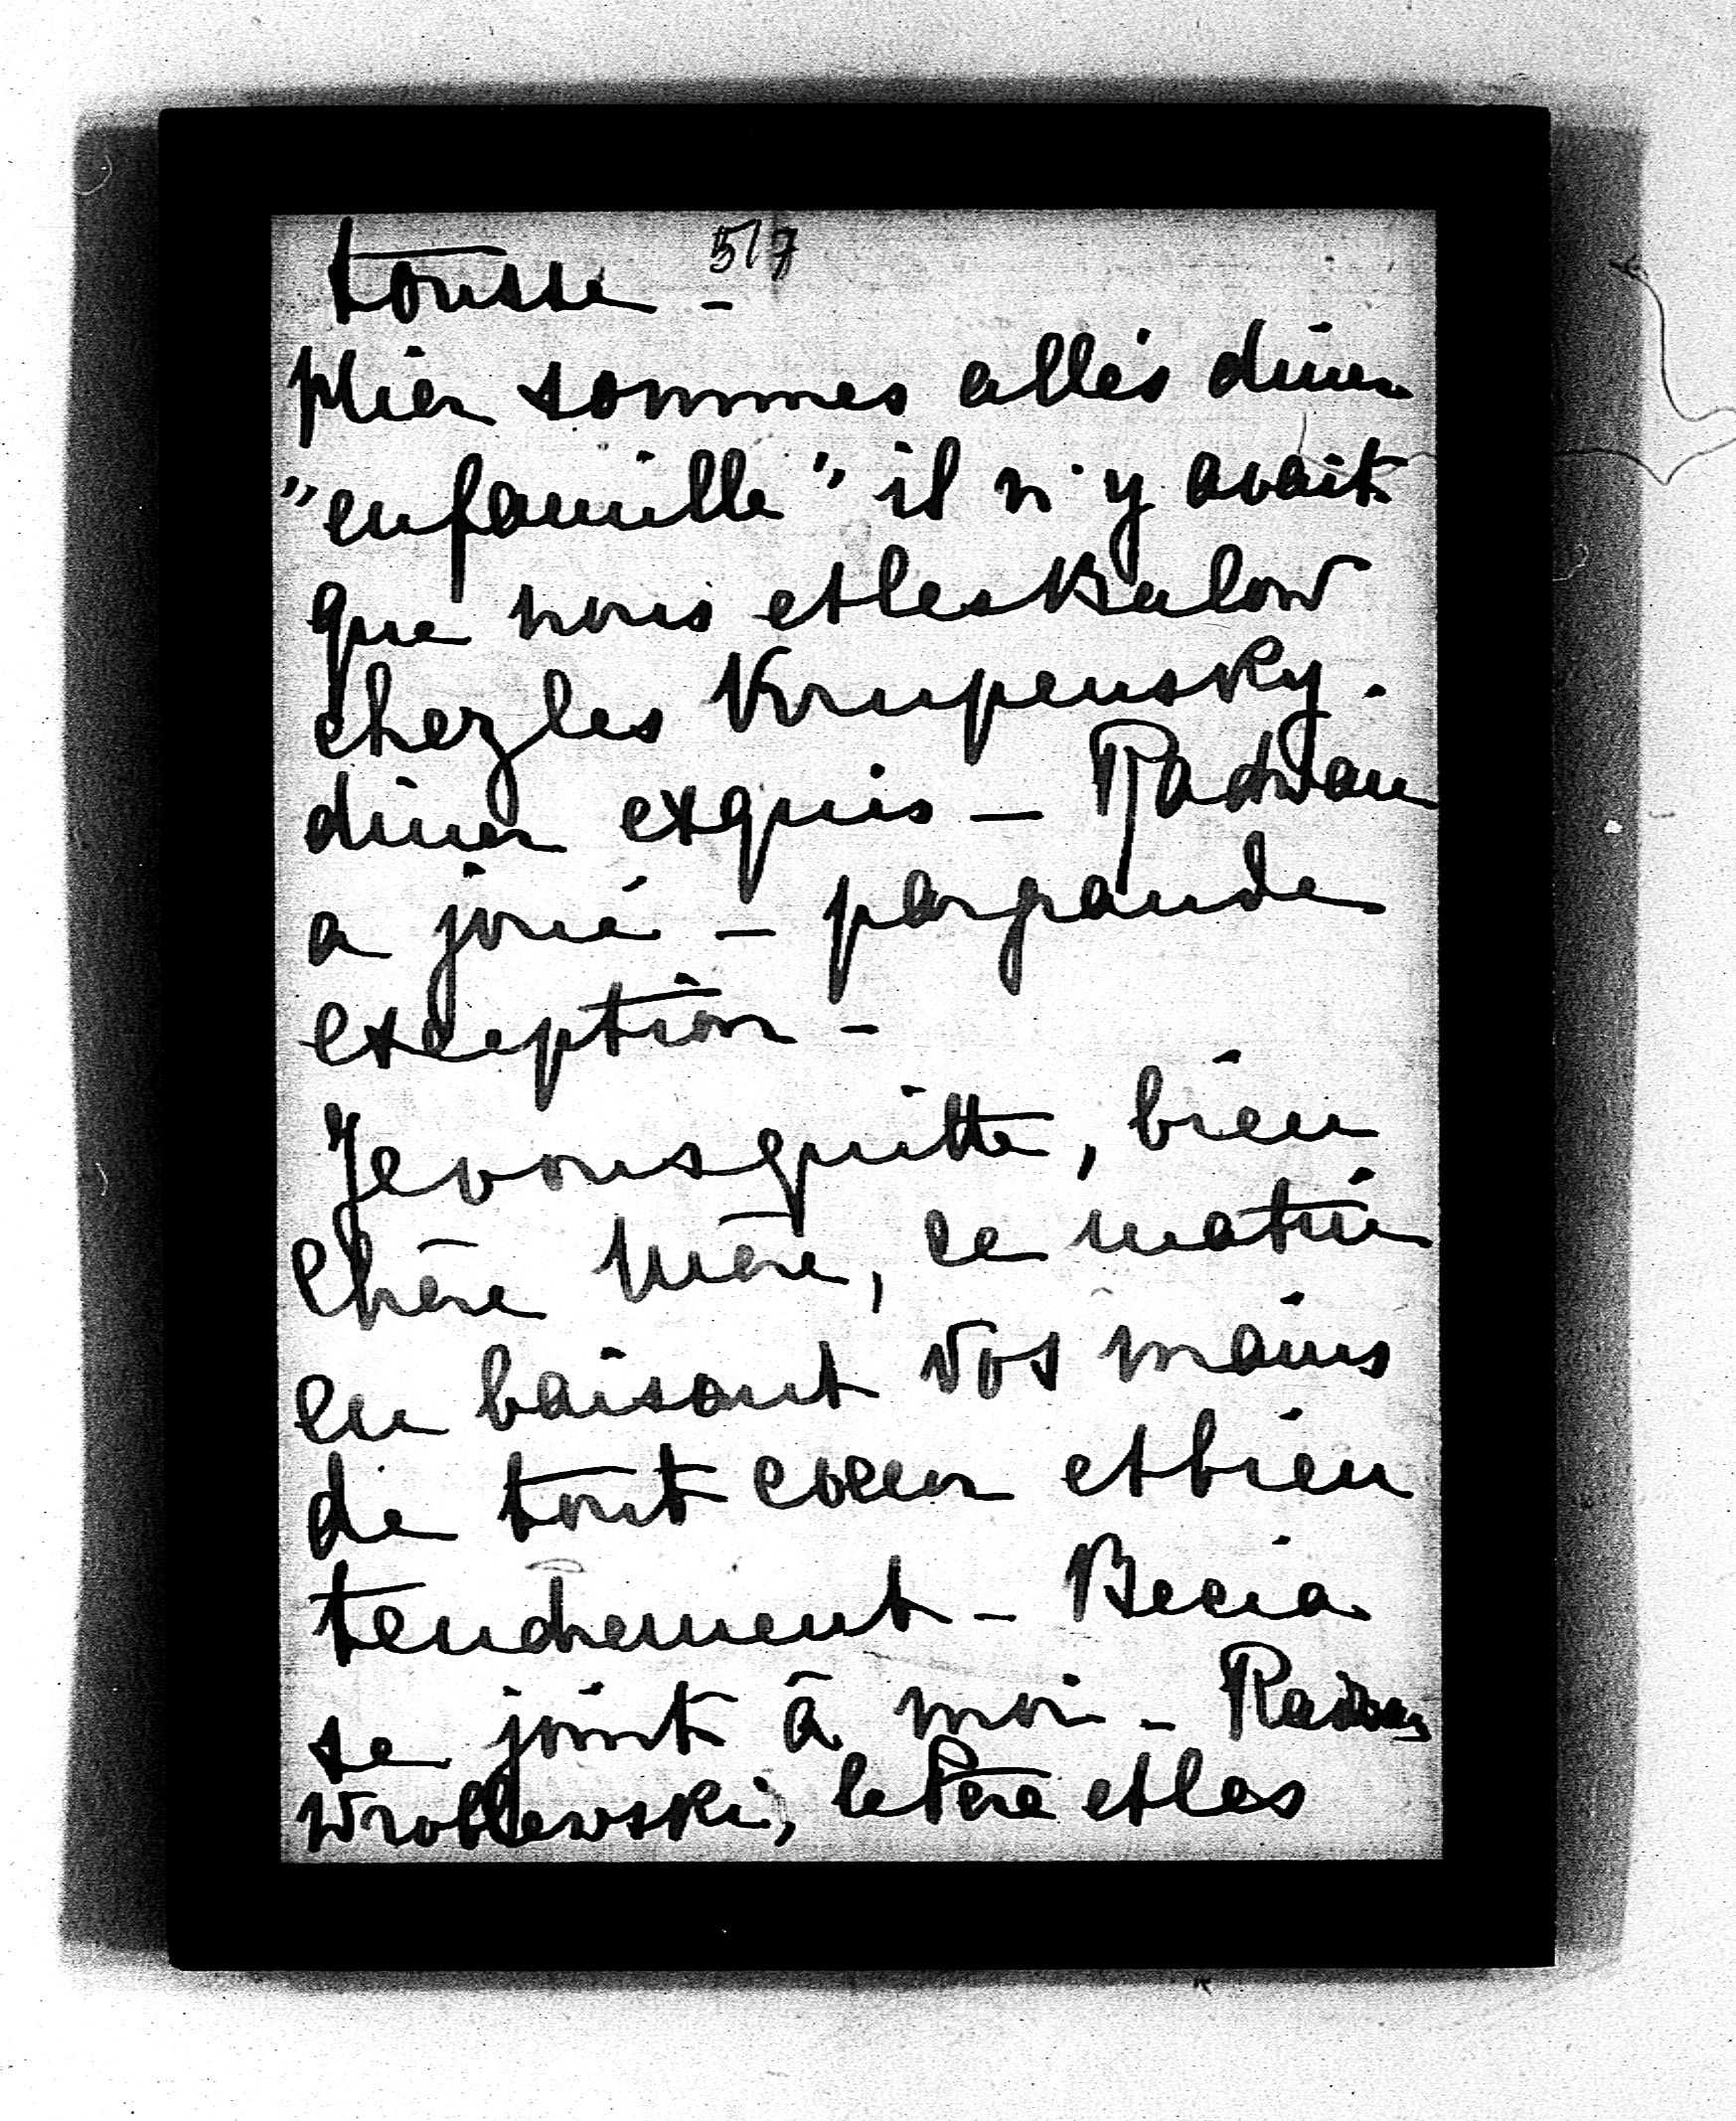 517
tousse -
Hier sommes allés diner
"en famille" il n'y avait
que nous et les Bulow
chez les Krupensky.
diner exquis - Radwan
a joué - par grande
exception -
Je vous quitte, bien
Chère Mère, ce matin
en baisant vos mains
de tout coeur et bien
tendrement - Becia
se joint à moi - Radwan
Wroblewski, le Père et les